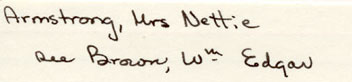 Armstrong, Mrs Nettie
see Brown, Wm Edgar